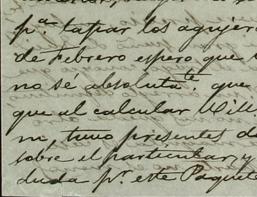 pa. tapar los agujero
de Febrero espero que
no sé absolutate. que
que al calcular Will
ni tuvo presentes d
sobre el particular, y
duda pr. este Paquete